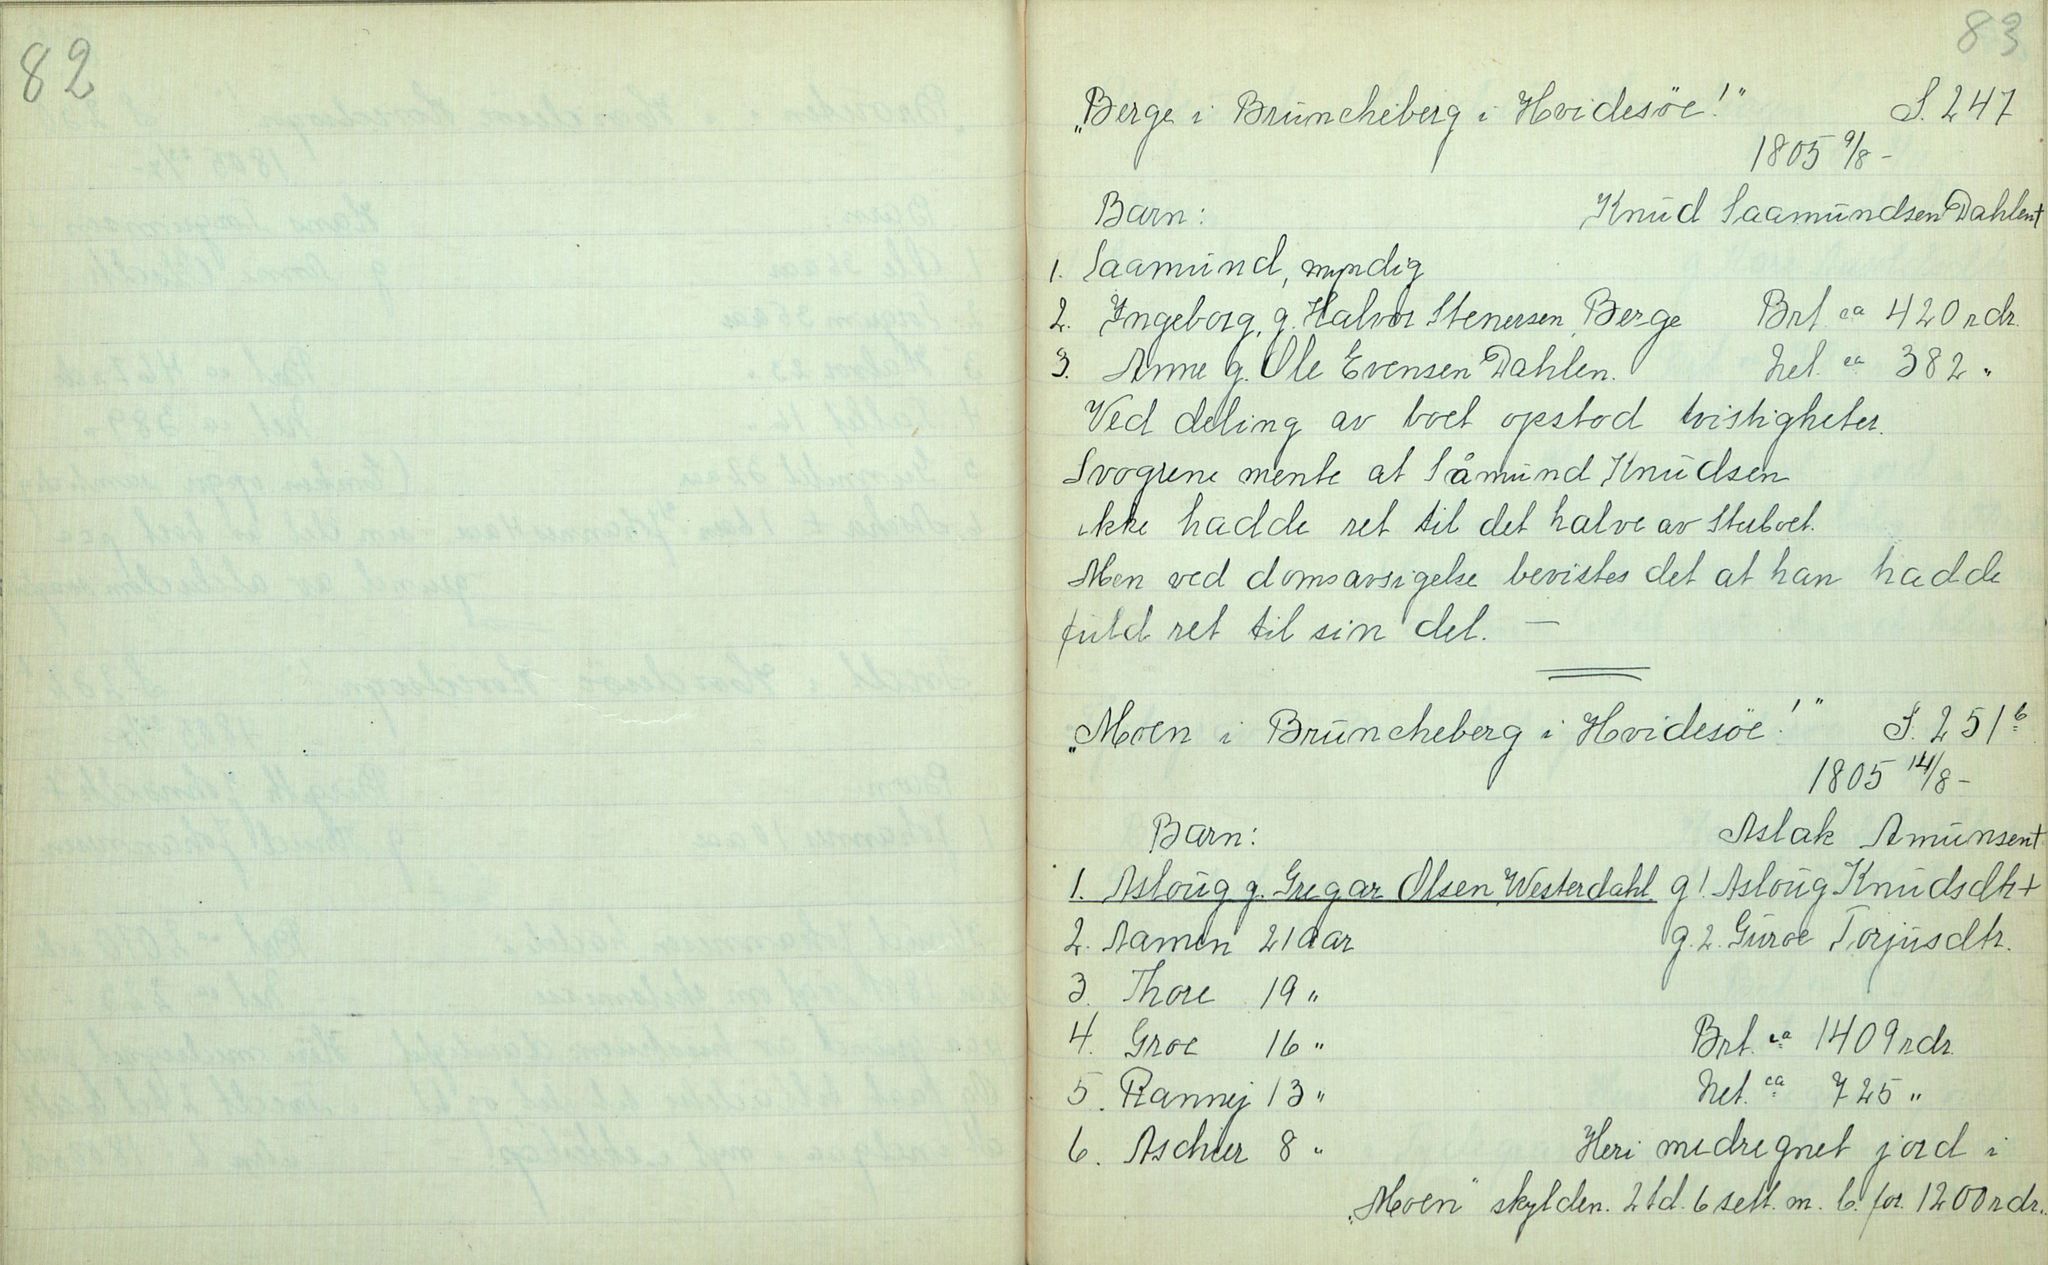 82
83
„Berge i Brüncheberg i Hvidesöe!" S. 247
1805 9/8 -
Barn: Knüd Saamündsen Dahlen +
1. Saamünd, myndig
2. Yngeborg, g. Halvor Stenersen Berge Brt. ca 420 rdr.
3. Anne g. Ole Evensen Dahlen. Net. ca 382 "
Ved deling av boet opstod tvistigheter.
Svogrene mente at Såmünd Knüdsen
ikke hadde ret til det halve av Sterboet.
Men ved domsavsigelse bevistes det at han hadde
füld ret til sin del. —
„Moen i Brüncheberg i Hvidesöe!" S. 251 b
1805 14/8 -
Barn: Aslak Amünsen +
1. Asloüg g. Gregar Olsen Westerdahl g 1 Asloüg Knüdsdtr +
2. Aamon 21 aar g. 2. Güroe Torjüsdtr.
3. Thore 19 "
4. Groe 16 " Brt. ca 1409 rdr.
5. Rannej 13 " Net. ca 725 "
6. Aschier 8 " Heri medregnet jord i
„Moen" skylden. 2 td. 6 sett. m. b. for. 1200 rdr.